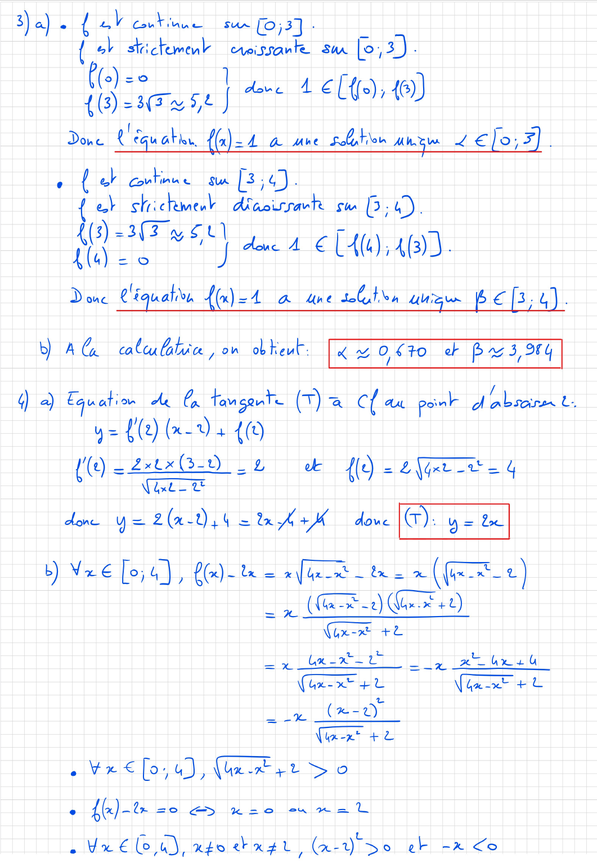 3) a) • f est continue sur [0;3].
f est strictement croissante sur [0;3].
f(0) = 0
f(3) = 3√3 ≈ 5,2 } donc 1 ∈ [f(0); f(3)]
Donc l'équation f(x)=1 a une solution unique α ∈ [0;3].
• f est continue sur [3;4].
f est strictement décroissante sur [3;4].
f(3) = 3√3 ≈ 5,2
f(4) = 0 } donc 1 ∈ [f(4); f(3)].
Donc l'équation f(x)=1 a une solution unique β ∈ [3;4].
b) A la calculatrice, on obtient: α ≈ 0,670 et β ≈ 3,984
4) a) Equation de la tangente (T) à Cf au point d'abscisse 2:
y = f'(2) (x-2) + f(2)
f'(2) = (2×2×(3-2))/√(4×2-2²) = 2 et f(2) = 2√(4×2-2²) = 4
donc y = 2(x-2)+4 = 2x-4+4 donc (T): y = 2x
b) ∀x ∈ [0;4], f(x)-2x = x√(4x-x²) - 2x = x(√(4x-x²) - 2)
= x ((√(4x-x²) -2)(√(4x-x²) +2))/(√(4x-x²) +2)
= x (4x-x²-2²)/(√(4x-x²) +2) = -x (x²-4x+4)/(√(4x-x²) +2)
= -x (x-2)²/(√(4x-x²) +2)
• ∀x ∈ [0;4], √(4x-x²) +2 > 0
• f(x)-2x = 0 ⇔ x = 0 ou x = 2
• ∀x ∈ [0,4], x≠0 et x≠2, (x-2)² > 0 et -x < 0